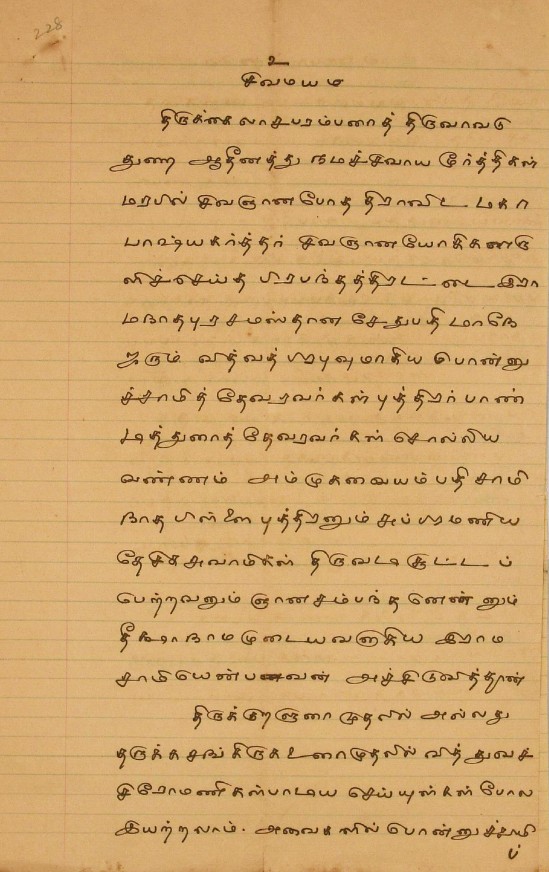 228
உ
சிவமயம
திருக்கைலாசபரம்பரைத் திருவாவடு
துறை ஆதீனத்து நமச்சிவாய மூர்த்திகள்
மரபில் சிவஞானபோத திராவிட மகா
பாஷியகர்த்தர் சிவஞான யோகிகளரு
ளிச்செய்த பிரபந்தத்திரட்டை இரா
மநாதபுர சமஸ்தான சேதுபதி மாநே
ஜரும் வித்வத் பிரபுவுமாகிய பொன்னு
ச்சாமித் தேவரவர்கள் புத்திரர் பாண்
டித்துரைத் தேவரவர்கள் சொல்லிய
வண்ணம் அம்முகவையம்பதி சாமி
நாத பிள்ளை புத்திரனும் சுப்பிரமணிய
தேசிகசுவாமிகள் திருவடி சூட்டப்
பெற்றவனும் ஞானசம்பந்தனென்னும்
தீக்ஷாநாமமுடையவனுகிய இராம
சாமியென்பவன் அச்சிடுவித்தான்
திருக்குறளுரை முதலில் அல்லது
தருக்கசங்கிரகவுரைமுதலில் வித்துவச்
சிரோமணிகள்பாடிய செய்யுள்கள் போல
இயற்றலாம். அவைகளில் பொன்னுச்சாமி
ப்